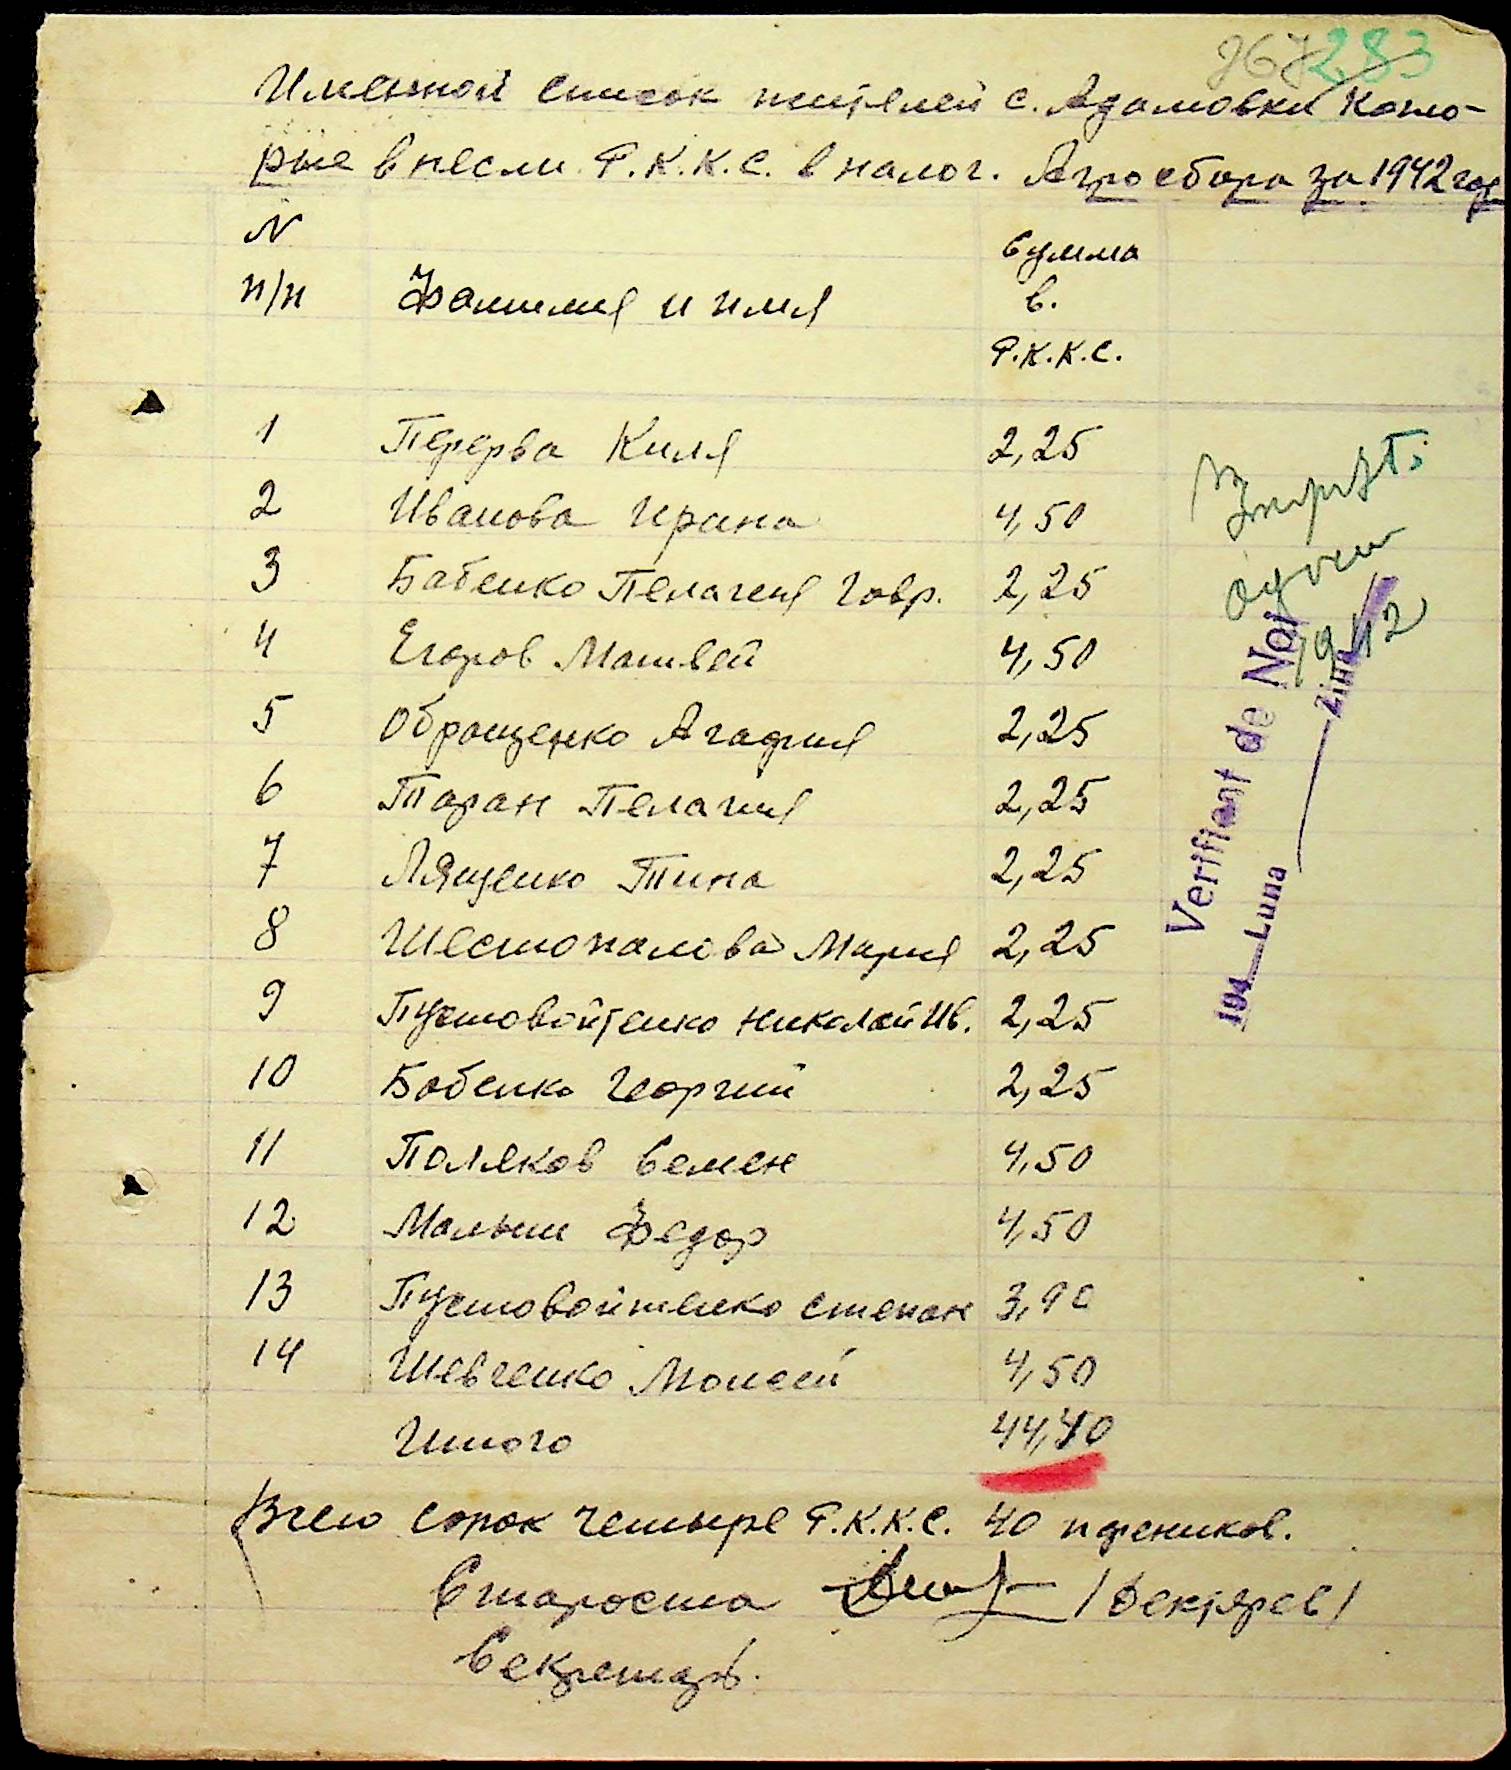 283
Именной список жителей с. Адамовки Кото-
рые внесли Р.К.К.С. в налог. Агросбора за 1942 год
N
п/п Фамилия и имя Сумма в. Р.К.К.С.
1 Перерва Киля 2,25
2 Иванова Ирина 4,50
3 Бабенко Пелагея Гавр. 2,25
4 Егоров Матвей 4,50
5 Обращенко Агафия 2,25
6 Таран Пелагия 2,25
7 Лященко Тина 2,25
8 Шестопалова Мария 2,25
9 Пустовойтенко Николай Ив. 2,25
10 Бабенко Георгий 2,25
11 Поляков Семен 4,50
12 Малыш Федор 4,50
13 Пустовойтенко Степан 3,90
14 Шевченко Моисей 4,50
Итого 44,40
Всего сорок четыре Р.К.К.С. 40 пфеников.
Староста /Дектярев/
Секретарь.
1942
Verificat de Noi
194 Luna Ziua